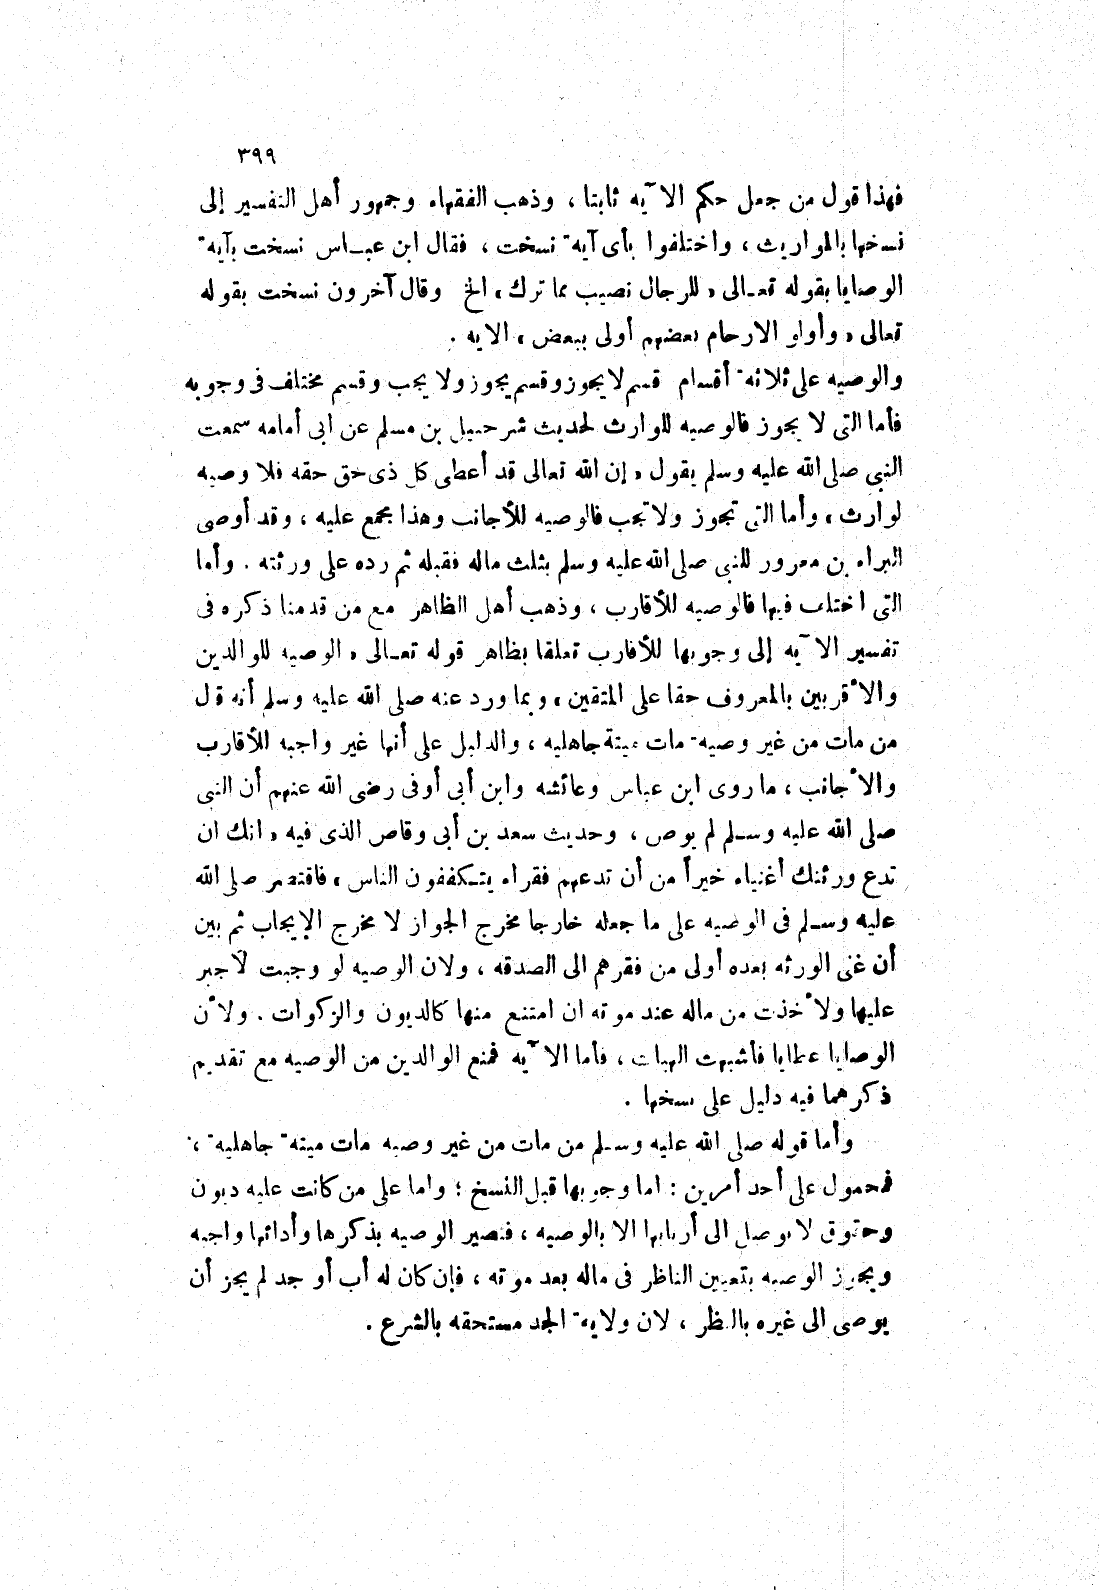 ٣٩٩
فهذا قول من جعل حكم الآيه ثابتا ، وذهب الفقهاء وجمهور أهل التفسير إلى
نسخها بالمواريث ، واختلفوا بأى آيه نسخت ، فقال ابن عباس نسخت بآيه
الوصايا بقوله تعالى « للرجال نصيب مما ترك » الخ وقال آخرون نسخت بقوله
تعالى « وأولو الارحام بعضهم أولى ببعض » الايه .
والوصيه على ثلاثه أقسام قسم لا يجوز وقسم يجوز ولا يجب وقسم مختلف فى وجوبه
فأما التى لا يجوز فالوصيه للوارث لحديث شرحبيل بن مسلم عن ابى أمامه سمعت
النبى صلى الله عليه وسلم يقول « إن الله تعالى قد أعطى كل ذى حق حقه فلا وصيه
لوارث » وأما التى تجوز ولا تجب فالوصيه للأجانب وهذا مجمع عليه ، وقد أوصى
البراء بن معرور للنبى صلى الله عليه وسلم بثلث ماله فقبله ثم رده على ورثته . وأما
التى اختلف فيها فالوصيه للأقارب ، وذهب أهل الظاهر مع من قدمنا ذكره فى
تفسير الآيه إلى وجوبها للأقارب تعلقا بظاهر قوله تعالى « الوصيه للوالدين
والأقربين بالمعروف حقا على المتقين » وبما ورد عنه صلى الله عليه وسلم أنه قال
من مات من غير وصيه مات ميتة جاهليه ، والدليل على أنها غير واجبه للأقارب
والأجانب ، ما روى ابن عباس وعائشه وابن أبى أوفى رضى الله عنهم أن النبى
صلى الله عليه وسلم لم يوص ، وحديث سعد بن أبى وقاص الذى فيه « انك ان
تدع ورثتك أغنياء خيراً من أن تدعهم فقراء يتكففون الناس » فاقتصر صلى الله
عليه وسلم فى الوصيه على ما جعله خارجا مخرج الجواز لا مخرج الإيجاب ثم بين
أن غنى الورثه بعده أولى من فقرهم الى الصدقه ، ولان الوصيه لو وجبت لأجبر
عليها ولأخذت من ماله عند موته ان امتنع منها كالديون والزكوات . ولأن
الوصايا عطايا فأشبهت الهبات ، فأما الآيه فمنع الوالدين من الوصيه مع تقديم
ذكرهما فيه دليل على نسخها .
وأما قوله صلى الله عليه وسلم من مات من غير وصيه مات ميته جاهليه ،
فمحمول على أحد أمرين : اما وجوبها قبل النسخ ؛ واما على من كانت عليه ديون
وحقوق لا يوصل الى أربابها الا بالوصيه ، فتصير الوصيه بذكرها وأدائها واجبه
ويجوز الوصيه بتعيين الناظر فى ماله بعد موته ، فإن كان له أب أو جد لم يجز أن
يوصى الى غيره بالنظر ، لان ولايه الجد مستحقه بالشرع .